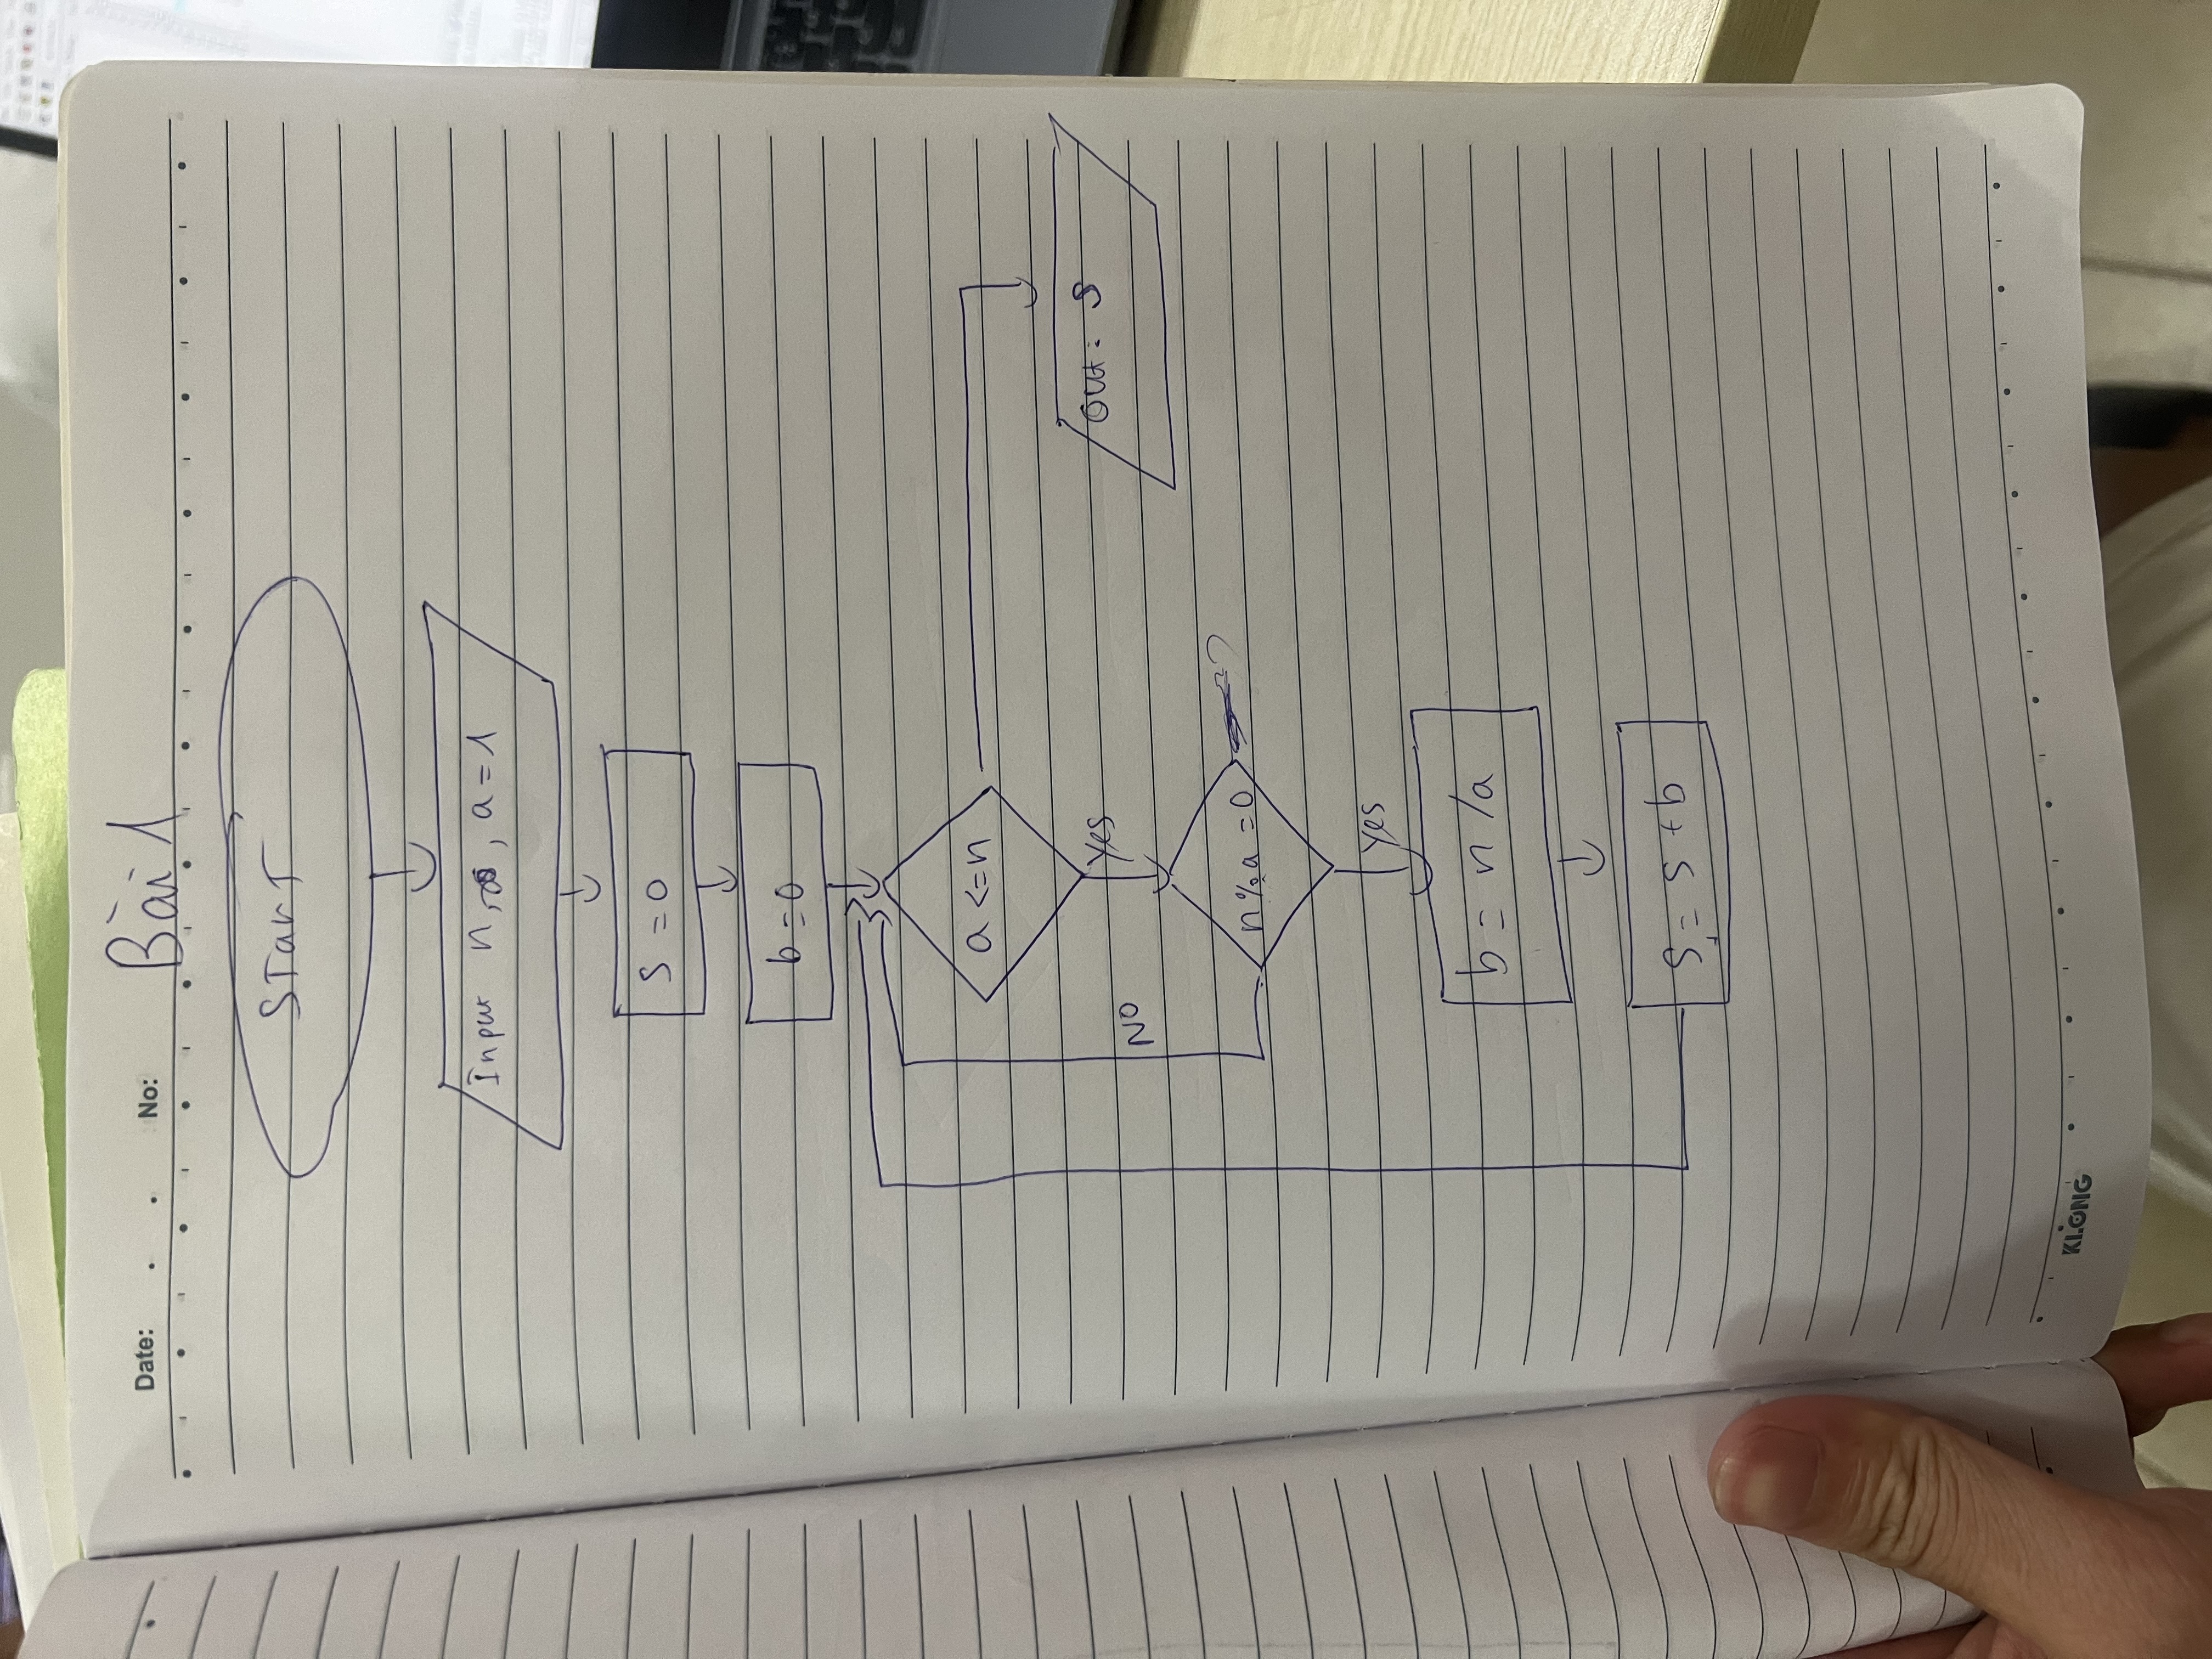 Date: . . No: Bài 1
Start
Input n, , a = 1
S = 0
b = 0
a <= n
Yes
NO
Out: S
n % a = 0
Yes
b = n / a
S = S + b
KLONG